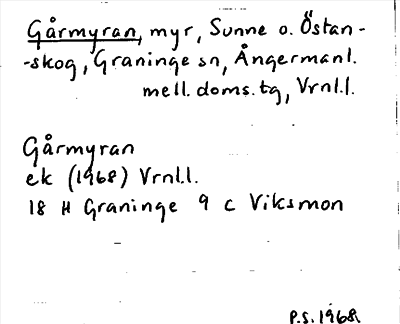 Gårmyran, myr, Sunne o. Östan-
-skog, Graninge sn, Ångermanl.
mell. doms. tg, Vrnl.l.
Gårmyran
ek (1968) Vrnl.l.
18 H Graninge 9 c Viksmon
P.S. 1968